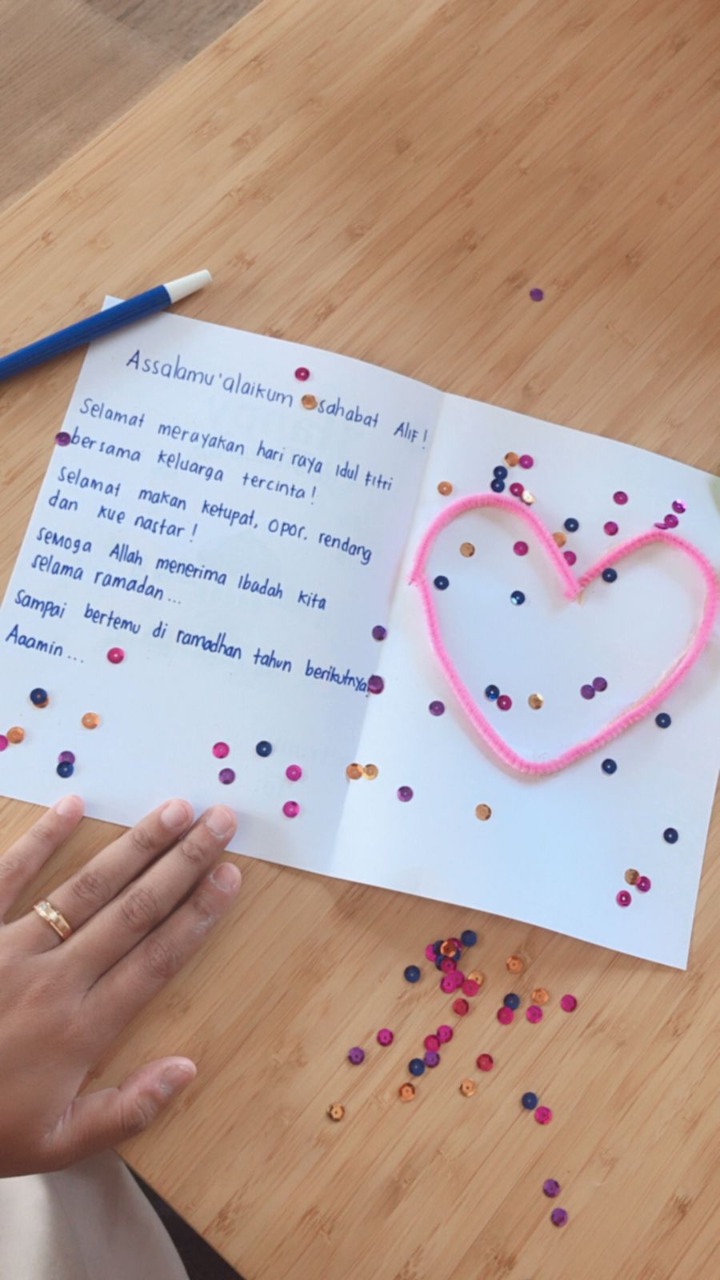 Assalamu'alaikum sahabat Alif!
Selamat merayakan hari raya idul fitri
bersama keluarga tercinta!
Selamat makan ketupat, opor, rendang
dan kue nastar!
semoga Allah menerima ibadah kita
selama ramadan...
Sampai bertemu di ramadhan tahun berikutnya!
Aaamin...